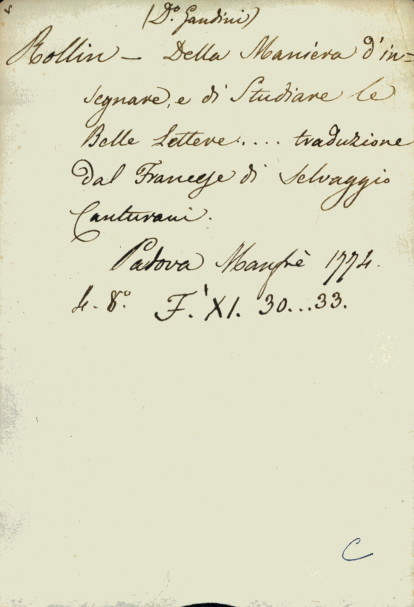 (D.º Gandini)
Rollin – Della Maniera d'in=
segnare, e di Studiare le
Belle Lettere.... traduzione
dal Francese di Selvaggio
Canturani.
Padova Manfrè 1774.
4. 8.º F. XI. 30...33.
C